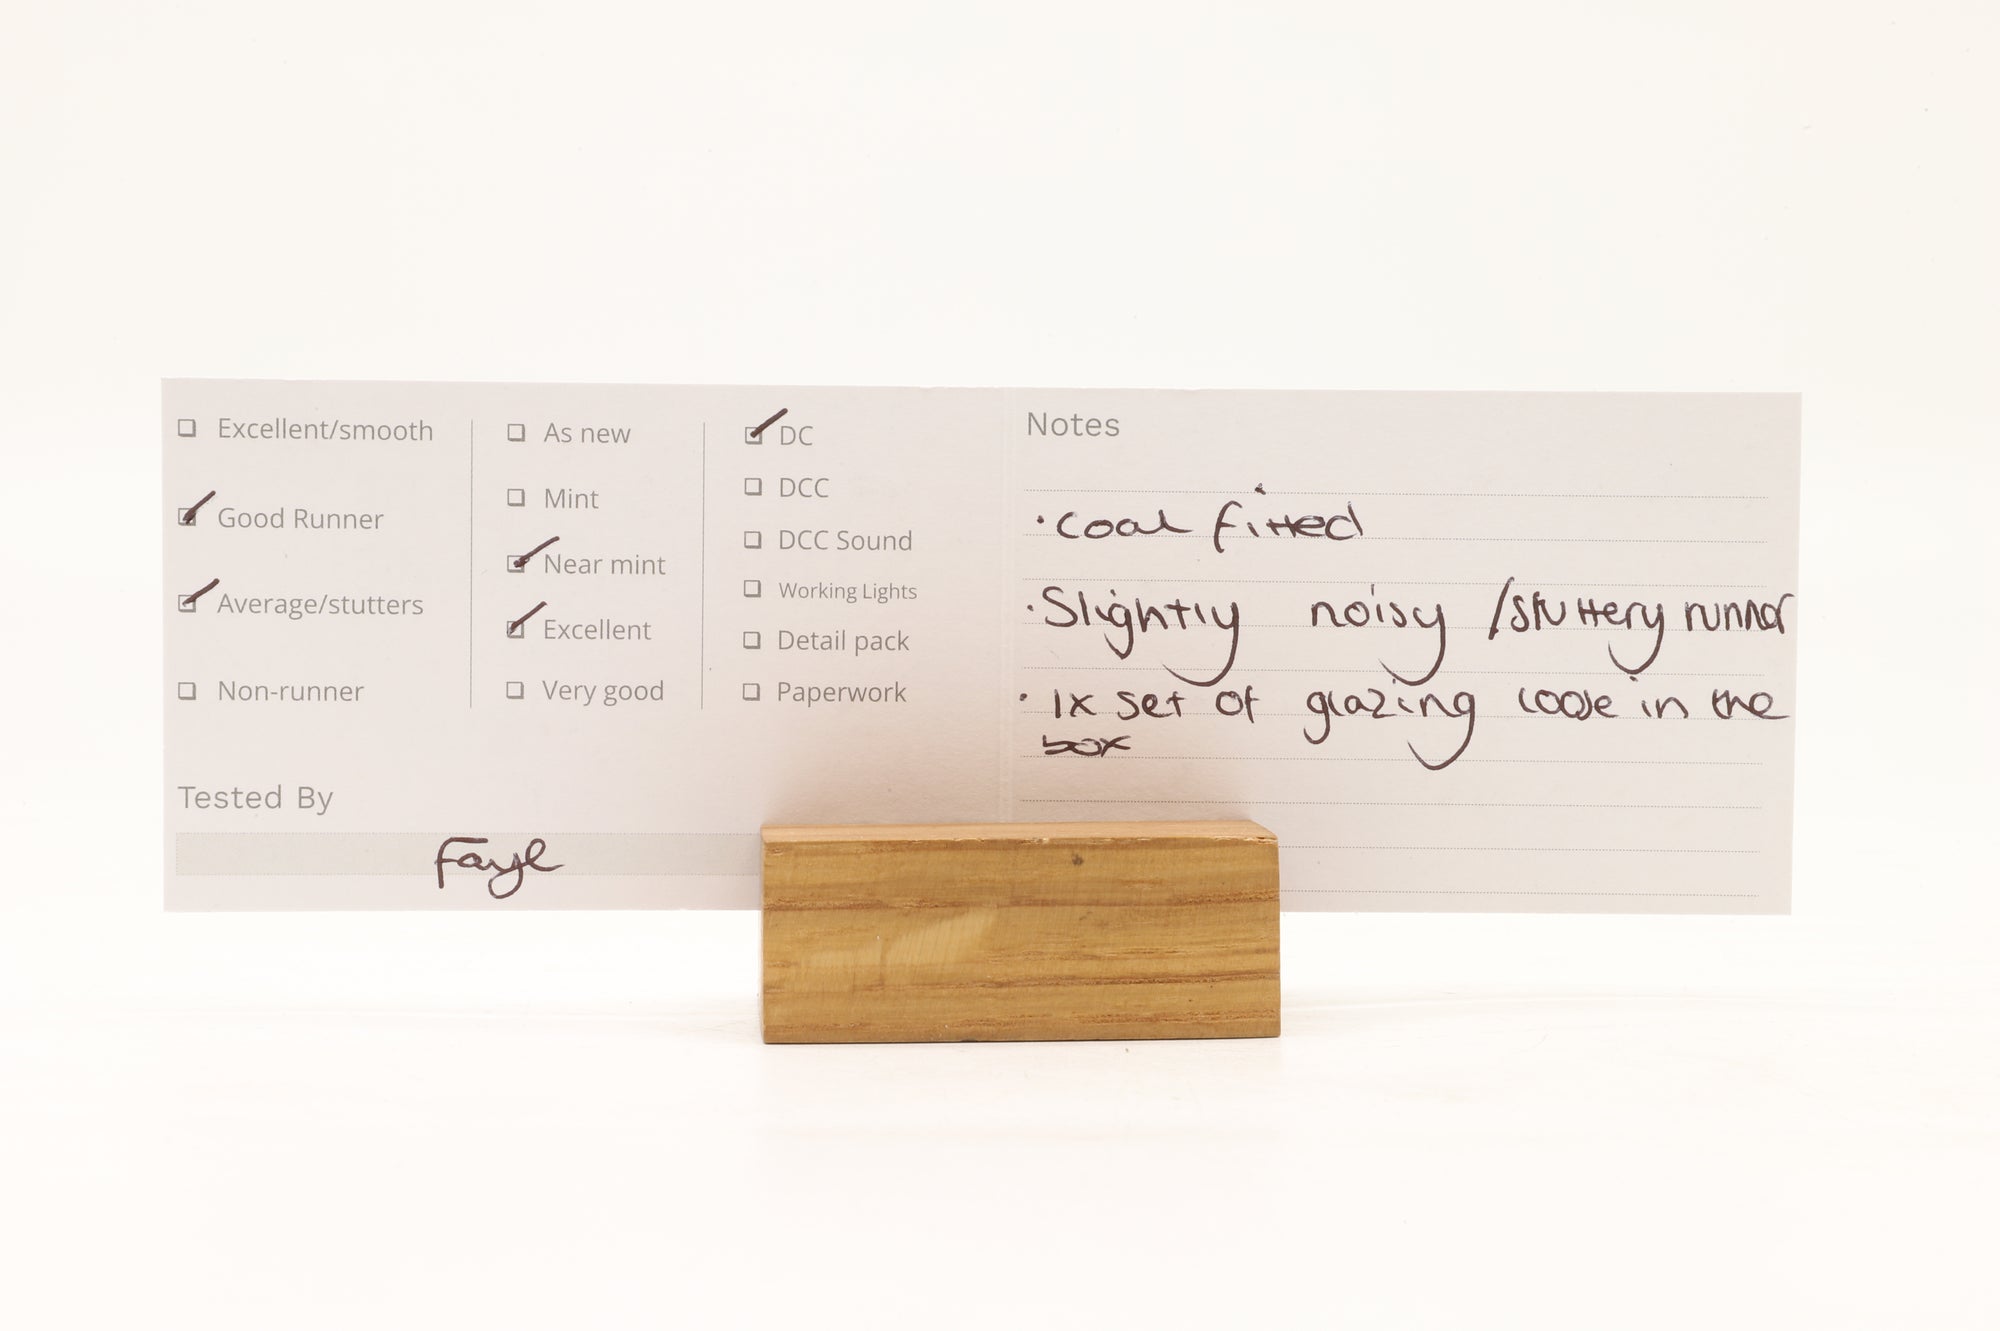 Excellent/smooth
Good Runner
Average/stutters
Non-runner
As new
Mint
Near mint
Excellent
Very good
DC
DCC
DCC Sound
Working Lights
Detail pack
Paperwork
Tested By
Faye
Notes
· Coal fitted
· Slightly noisy /stuttery runner
· 1x set of glazing loose in the
box